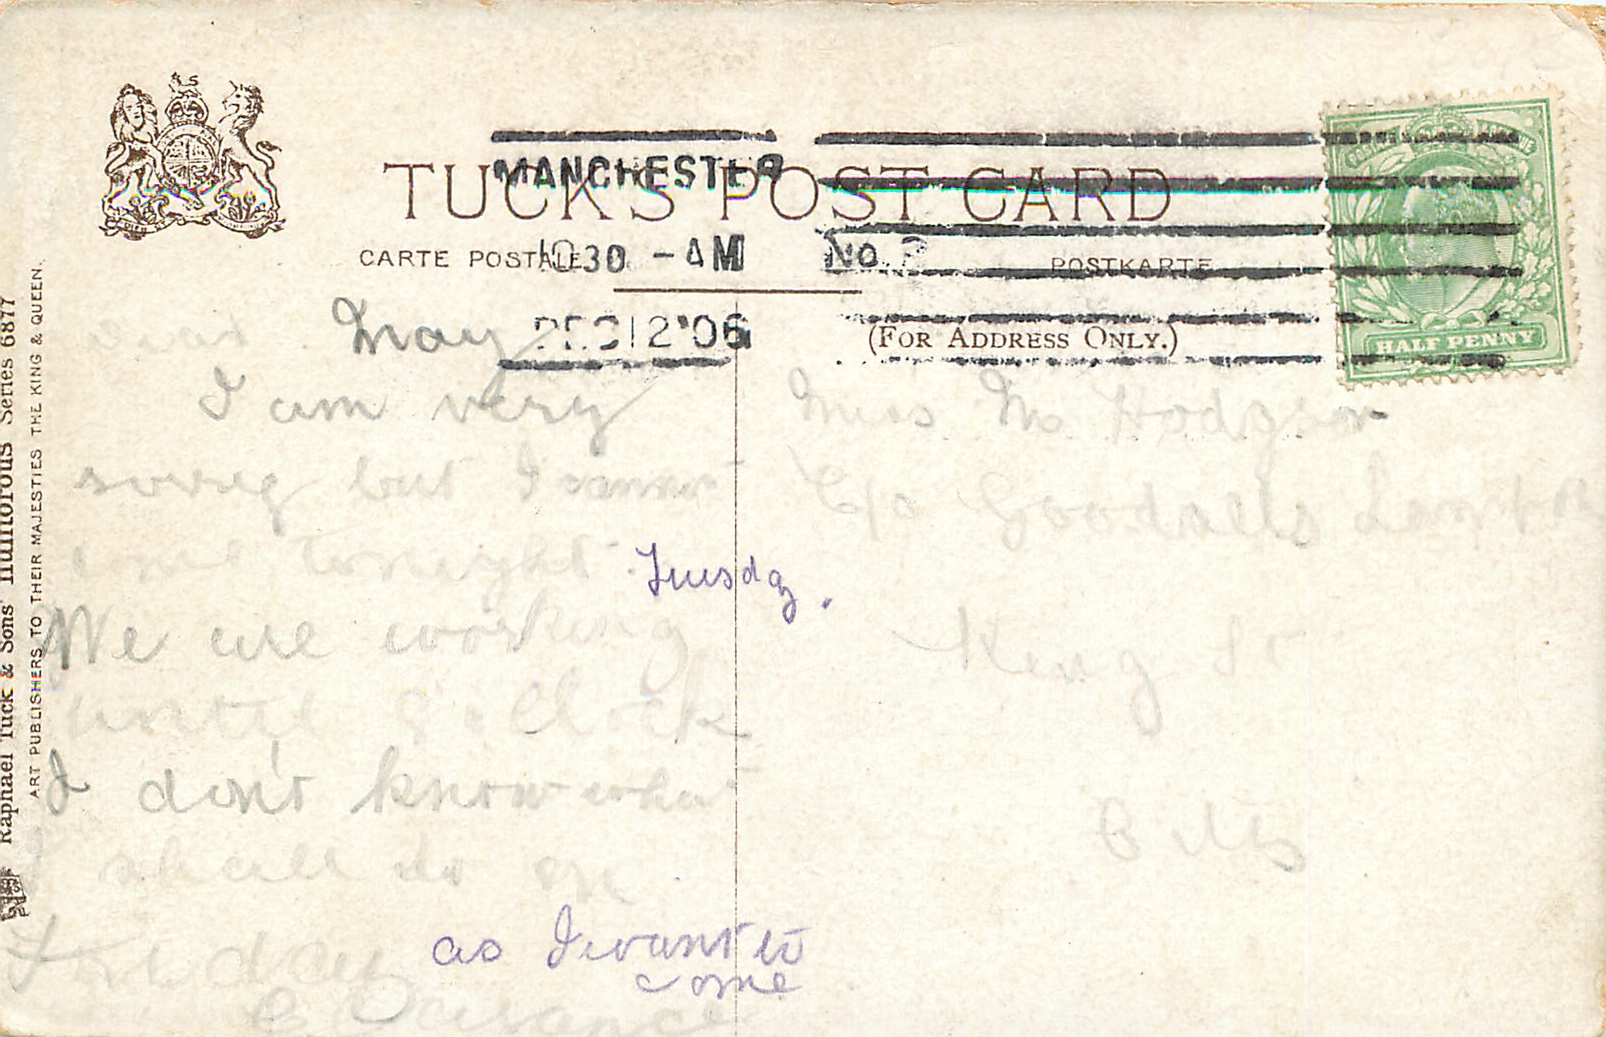 TUCK'S POST CARD
CARTE POSTALE
POSTKARTE
(FOR ADDRESS ONLY.)
MANCHESTER
10 30 - AM
No
DEC 12 '06
HALF PENNY
Raphael Tuck & Sons' Humorous Series 6877
ART PUBLISHERS TO THEIR MAJESTIES THE KING & QUEEN.
Dear May
I am very
sorry but I cannot
come tonight. Tuesday.
We are working
until 8 oClock
I don't know what
I shall do on
as I want to
come
Miss M Hodgson
C/o Goodalls
King St